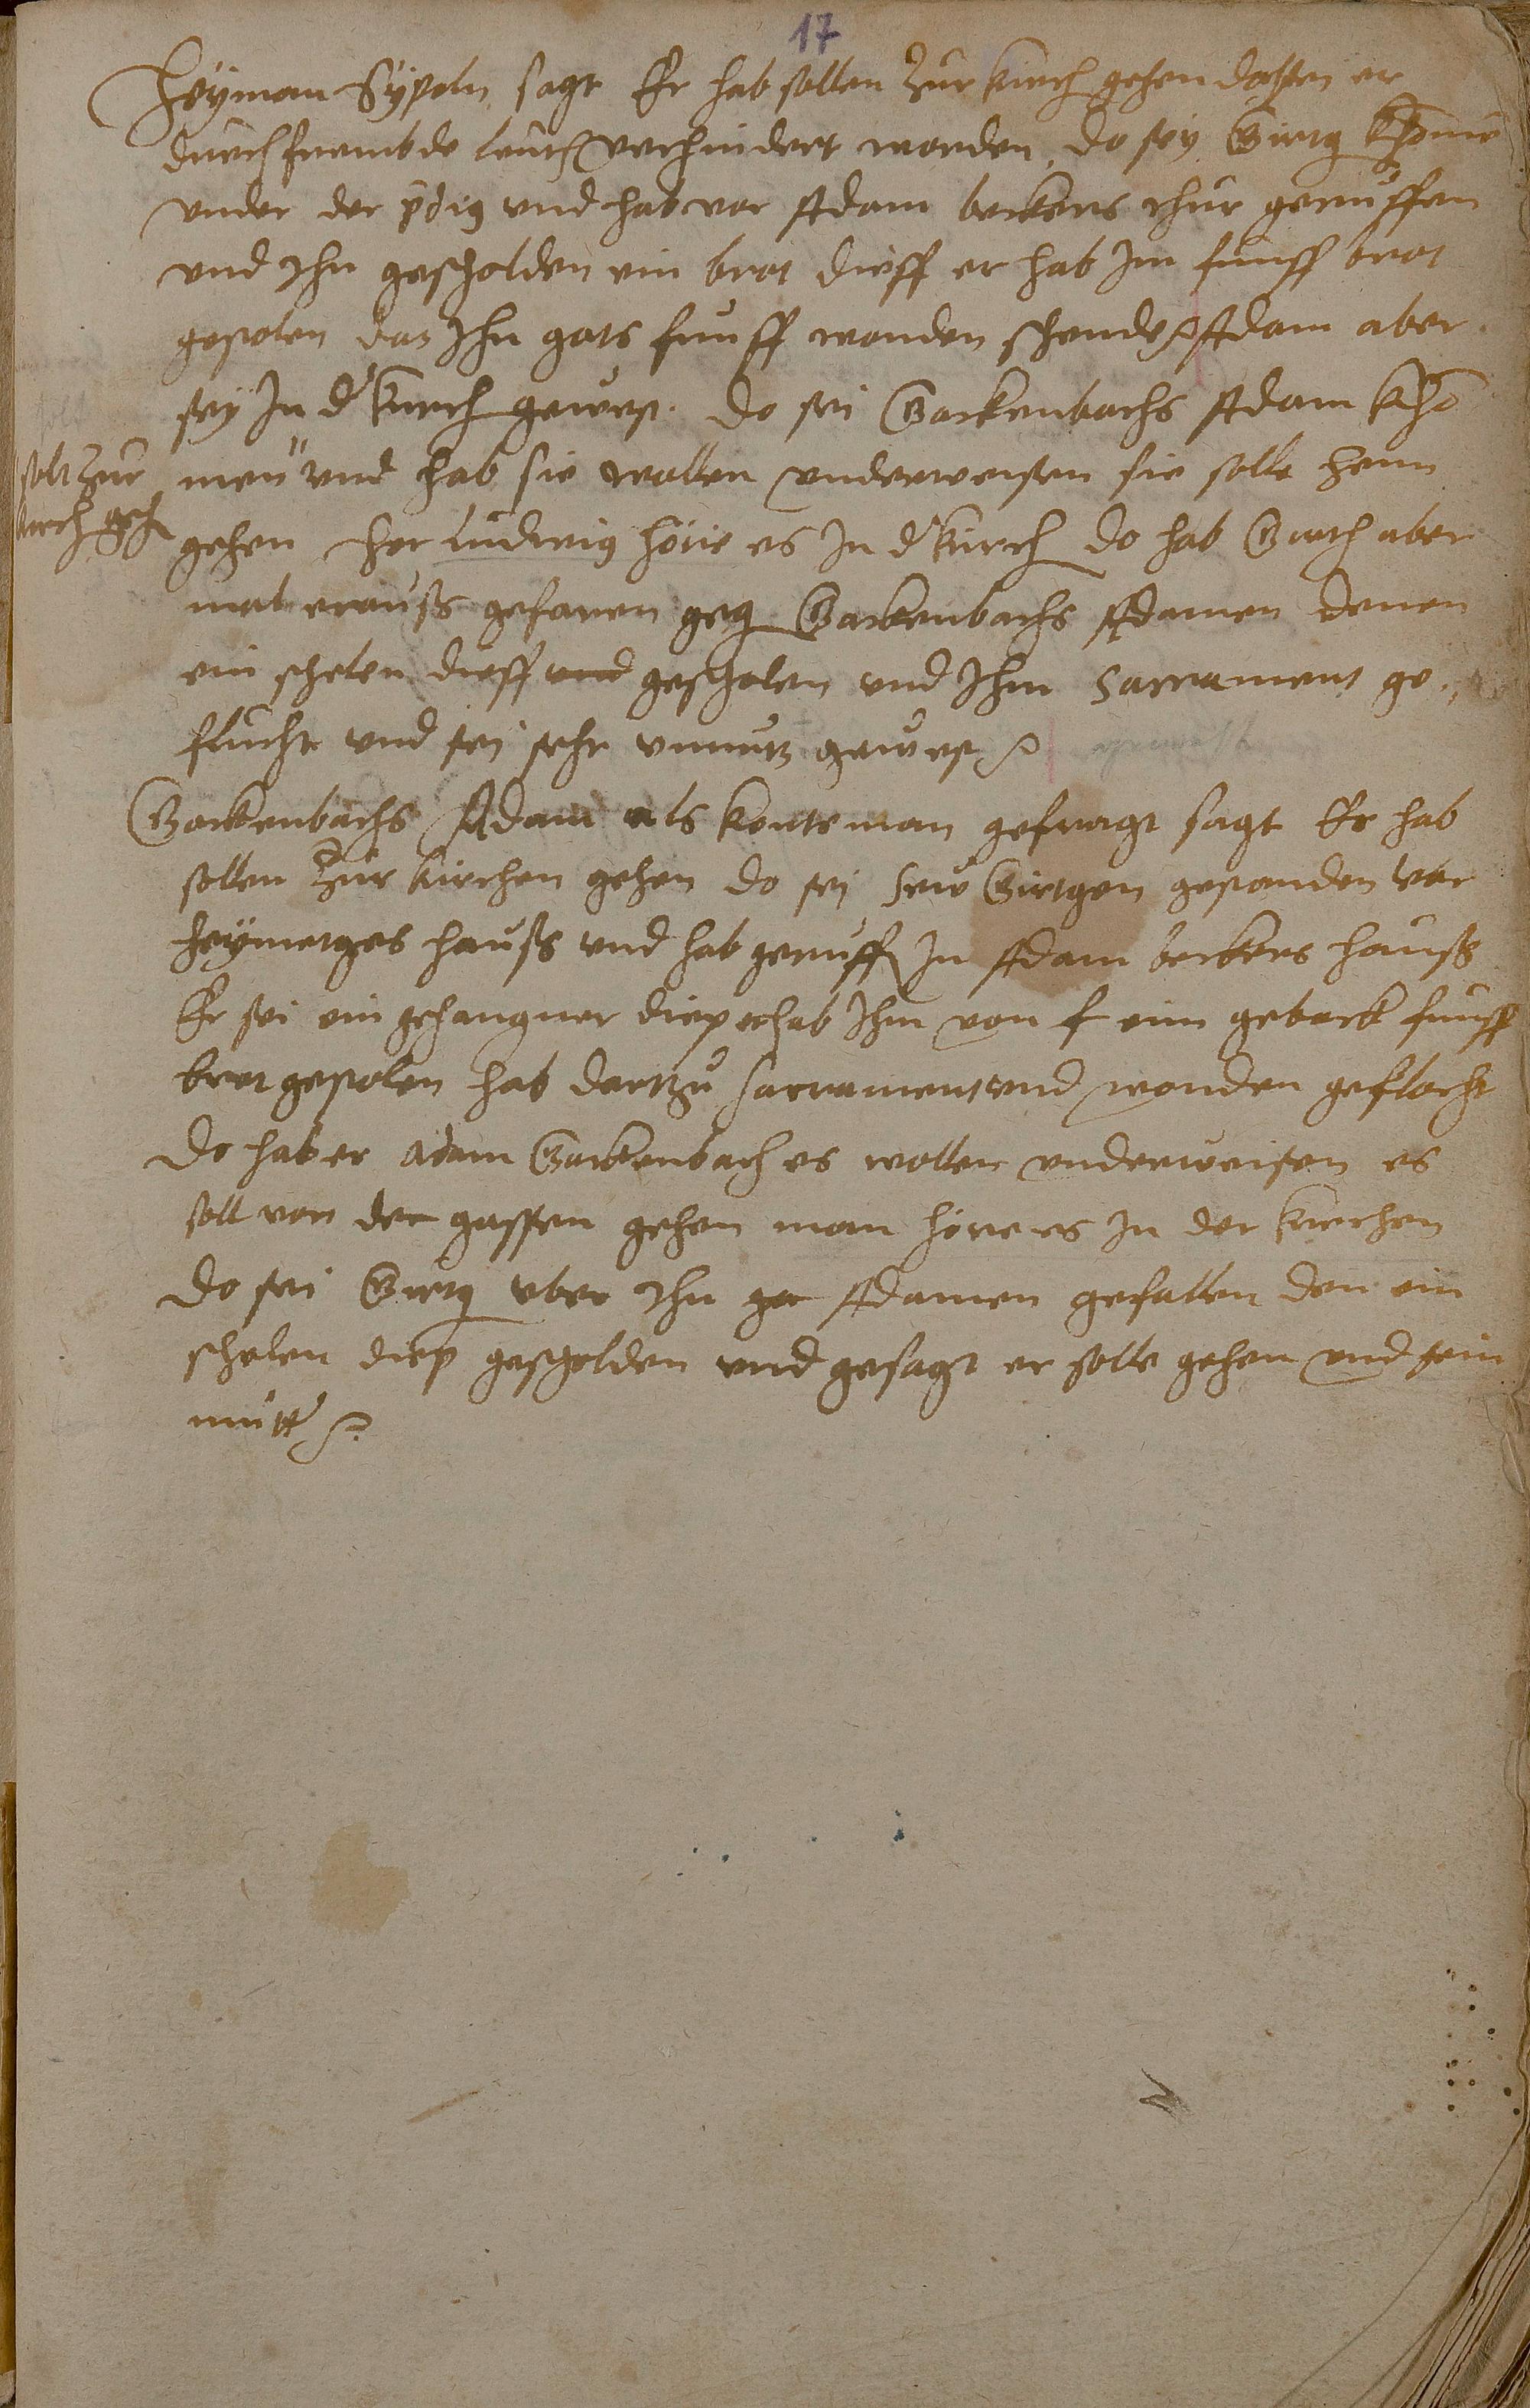 17
Heyman Sypeln sagt Er hab sollen zur kirch gehen dessen er
durch frembde leuth verhindert worden, do sey Girtg khome
under der pdig und hab vor Adam beckers thur geruffen
und Ihn gescholden ein brot dieff er hab Im funff brot
gestolen das Ihn gots funff wonden schende Adam aber
sey In d kirch gewest. do sei Gackenbachs Adam kho
men und hab sie wollen underweisen sie solle heim
solt zur
kirch geh
gehen Her Ludwig höre es In d kirch do hab Girth aber
mal erauß gefaren geg Gackenbachs Adamen denen
ein schelen dieff und gescholen und Ihm Sacrament ge
flucht und sei sehr unnutz gewest
Gackenbachs Adam als kontsman gefragt sagt Er hab
sollen zur kirchen gehen do sei Girtgen gestanden vor
heymetges hauß und hab geruff In Adam beckers hauß
Er sei ein gehangner diep er hab Ihm von f eim geback funff
brot gestolen hab dartzu sacrament und wonden geflocht
do hab er Adam Gackenbach es wollen underweisen es
soll von der gassen gehen man höre es In der kirchen
do sei Girtg uber Ihn ge Adamen gefallen den ein
schelen diep gescholden und gesagt er solle gehen und sein
mutt